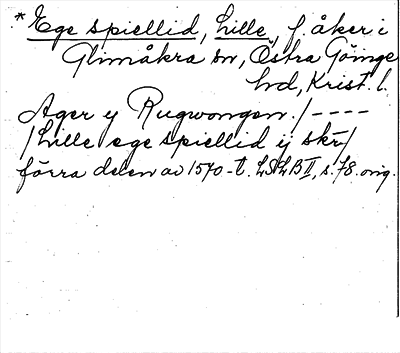 * Ege spiellid, Lille, f. åker i
Glimåkra sn, Östra Göinge
hd, Krist. l.
Ager y Rugwongen. / ----
/ Lille ege spiellid ij skr /
förra delen av 1570-t. LSLB II, s. 78. orig.